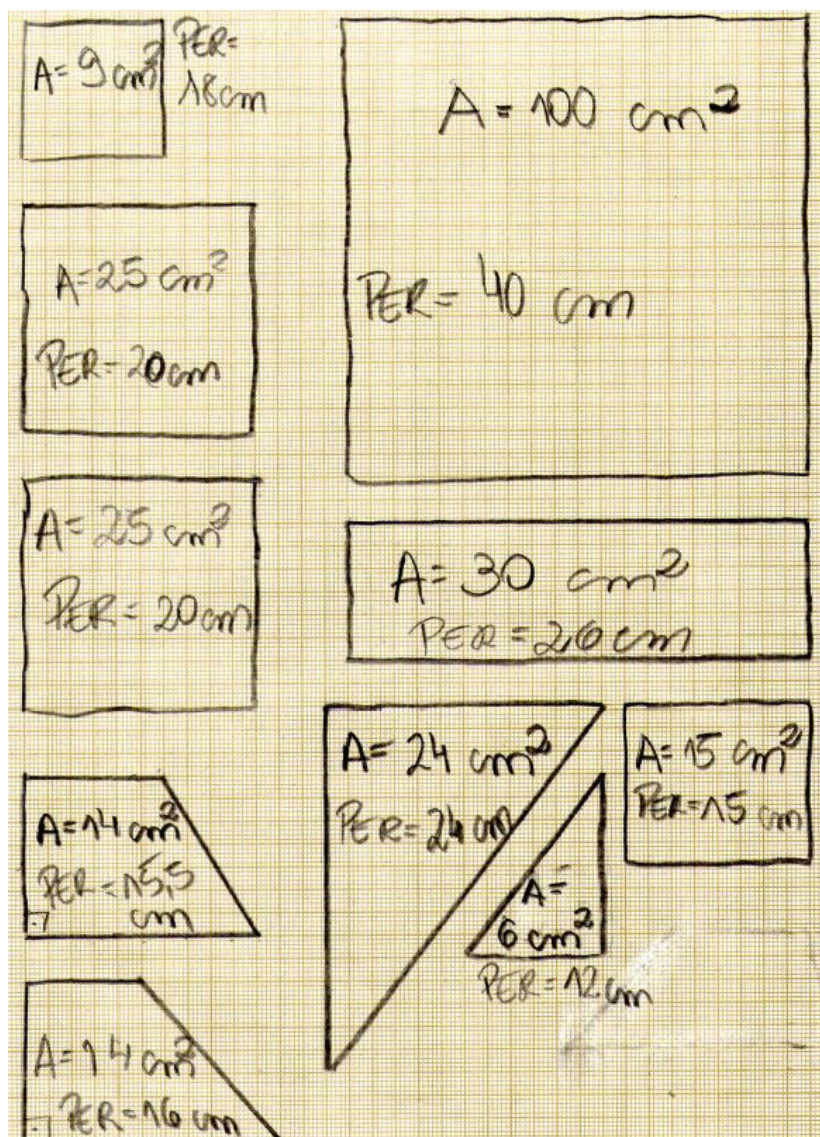 A= 9 cm²
PER=
18cm
A=25 cm²
PER=20cm
A=25 cm²
PER=20cm
A=14 cm²
PER=15,5
cm
A=14 cm²
PER=16 cm
A=100 cm²
PER= 40 cm
A=30 cm²
PER=26cm
A=24 cm²
PER=24cm
A=
6 cm²
PER=12cm
A=15 cm²
PER=15 cm